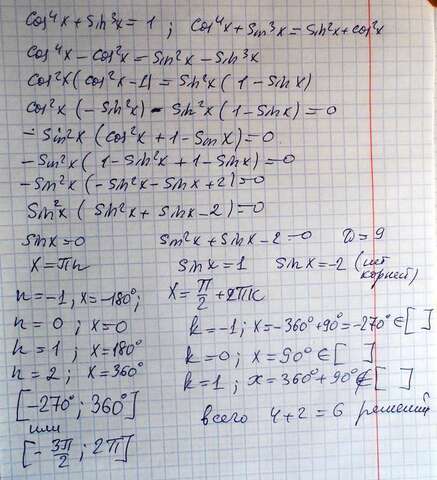 cos⁴x + sin³x = 1 ; cos⁴x + sin³x = sin²x + cos²x
cos⁴x - cos²x = sin²x - sin³x
cos²x (cos²x - 1) = sin²x (1 - sin x)
cos²x (-sin²x) - sin²x (1 - sin x) = 0
- sin²x (cos²x + 1 - sin x) = 0
- sin²x (1 - sin²x + 1 - sin x) = 0
- sin²x (- sin²x - sin x + 2) = 0
sin²x (sin²x + sin x - 2) = 0
sin x = 0 sin²x + sin x - 2 = 0 D = 9
x = πn sin x = 1 sin x = -2 (нет корней)
n = -1, x = -180°; x = π/2 + 2πk
n = 0 ; x = 0 k = -1; x = -360° + 90° = -270° ∈ [ ]
n = 1 ; x = 180° k = 0; x = 90° ∈ [ ]
n = 2 ; x = 360° k = 1 ; x = 360° + 90° ∉ [ ]
[-270°; 360°] всего 4 + 2 = 6 решений
или
[-3π/2 ; 2π]